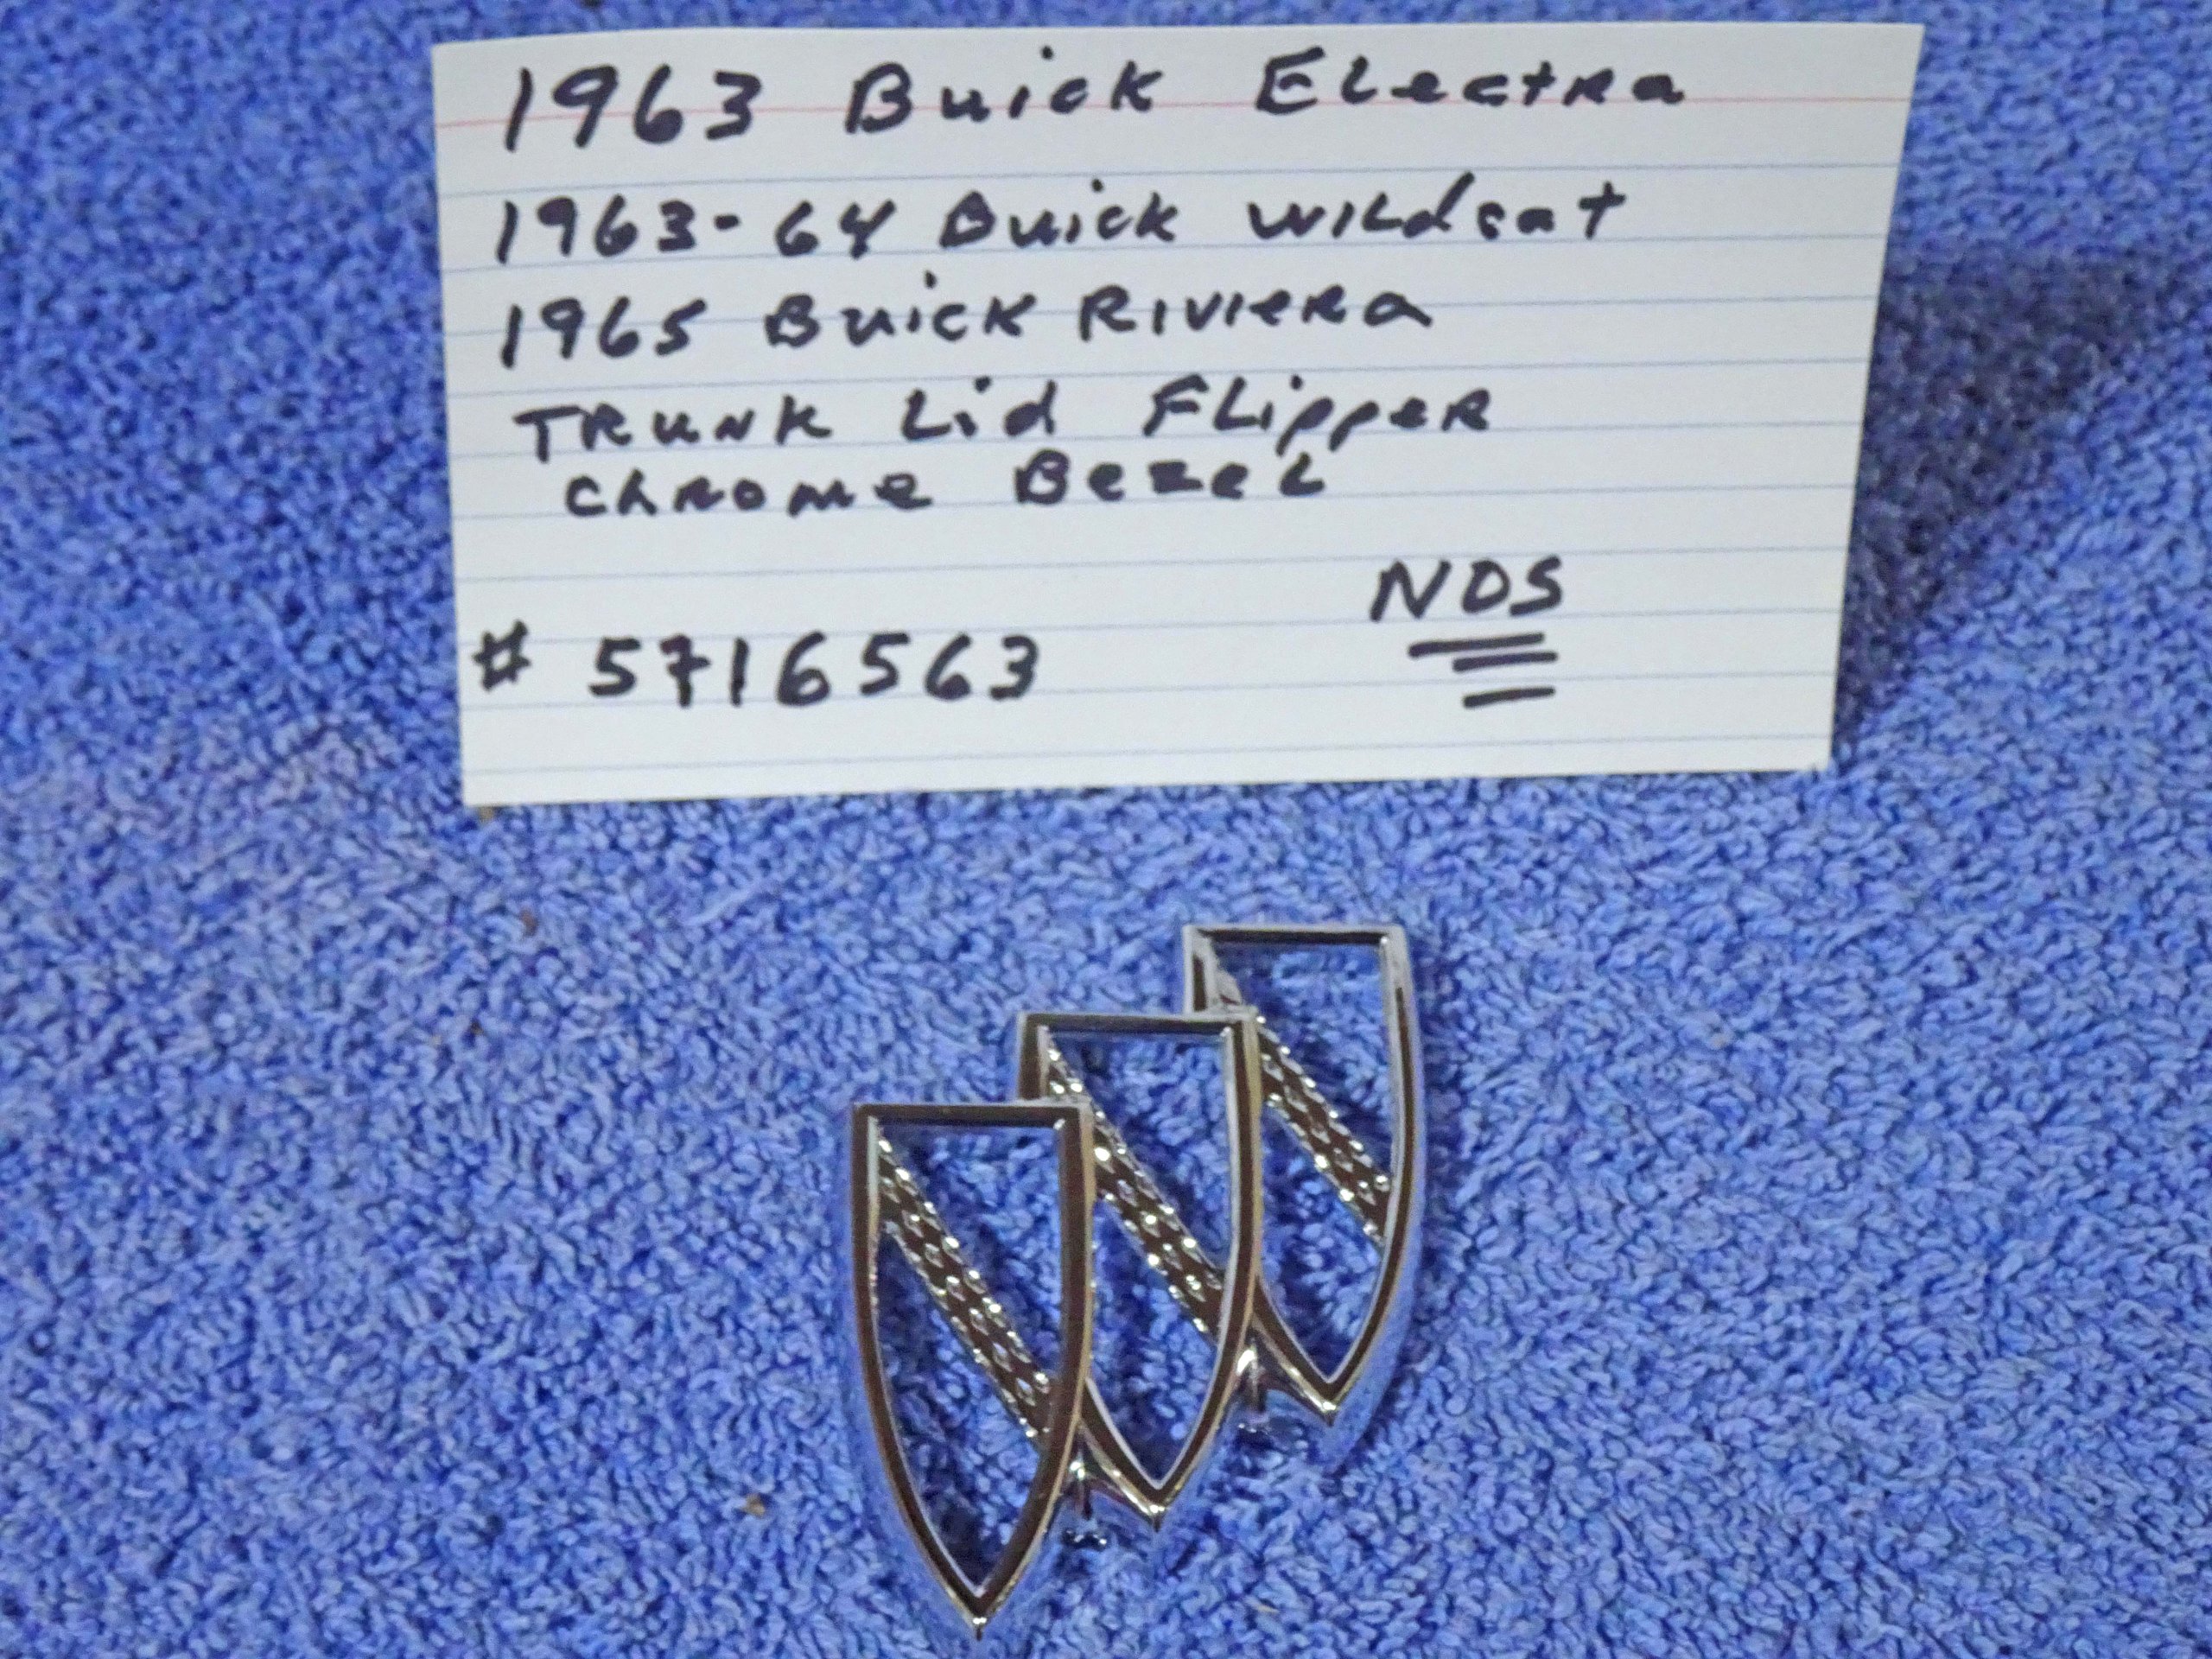 1963 Buick Electra
1963-64 Buick Wildcat
1965 Buick Riviera
Trunk Lid Flipper
Chrome Bezel
NOS
# 5716563